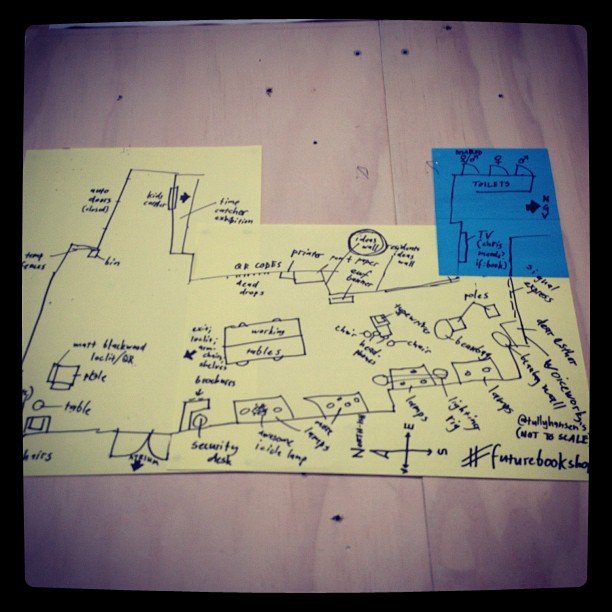 DISABLED
TOILETS
NGV
TV
(chris
meade:
if:book)
auto
doors
(closed)
kids
corner
time
catcher
exhibition
bin
temp
fences
QR CODES
dead
drops
printer
paper
ideas
wall
residents
ideas
wall
banner
signal
express
dear esther
poles
typewriter
chair
head-
phones
chair
beanbag
working
tables
exit,
shelves
brochures
mart blackwood
loclit/QR
table
table
chairs
atrium
security
desk
awesome
icicle lamp
lamps
more
lamps
lighting
rig
lamps
wall
N
E
S
@tullyhansen
(NOT TO SCALE)
#futurebookshop